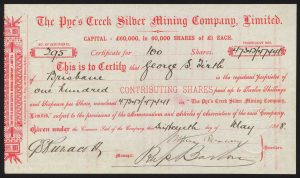 The Pye's Creek Silver Mining Company, Limited.
CAPITAL - £60,000, in 60,000 SHARES of £1 EACH.
No. of Certificate
395 Certificate for 100 Shares.
This is to Certify that George S. Firth
of Brisbane is the registered Proprietor of
one hundred CONTRIBUTING SHARES paid up to Twelve Shillings
and Sixpence per Share, numbered 47345/47444 in The Pye's Creek Silver Mining Company,
Limited, subject to the provisions of the Memorandum and articles of Association of the said Company.
Given under the Common Seal of the Company this Sixteenth day of May 1888.
Manager.